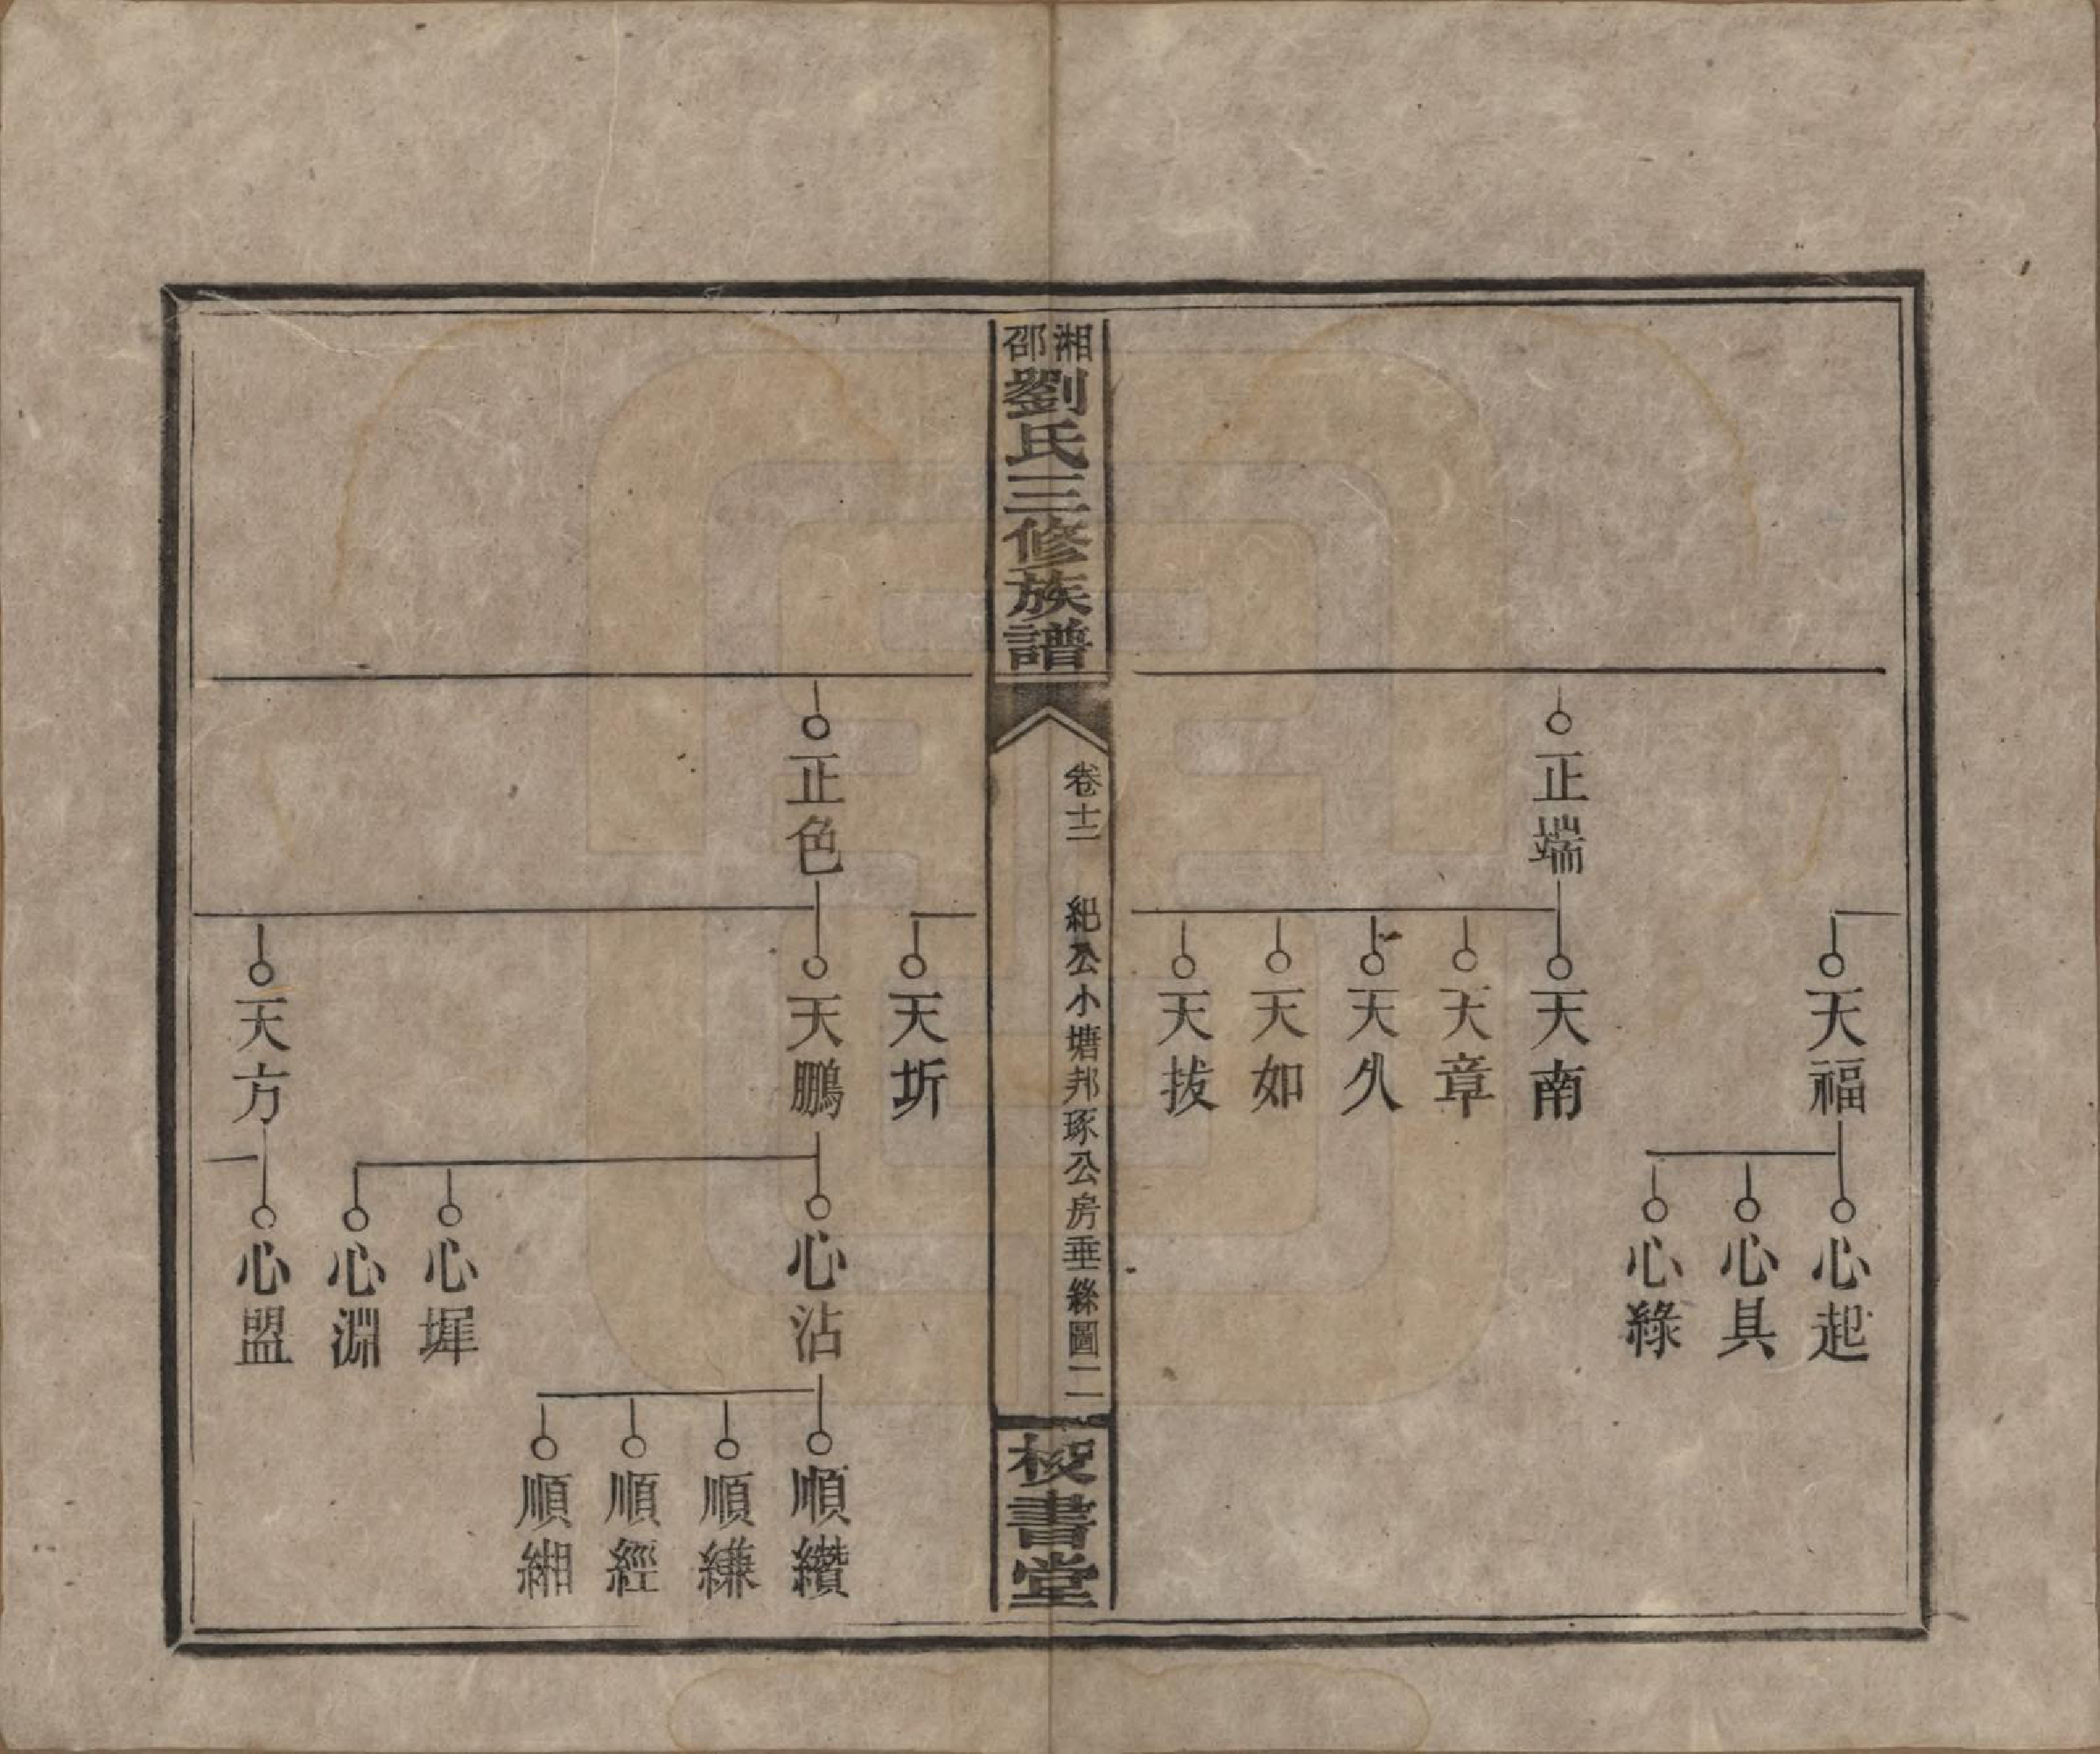 天福
心起
心具
心綠
正端
天南
天章
天久
天如
天拔
湘邵劉氏三修族譜
卷十二
紀公小塘邦琢公房垂絲圖二
校書堂
天圻
正色
天鵬
心沾
順纘
順縑
順經
順緗
心墀
心淵
天方
心盟